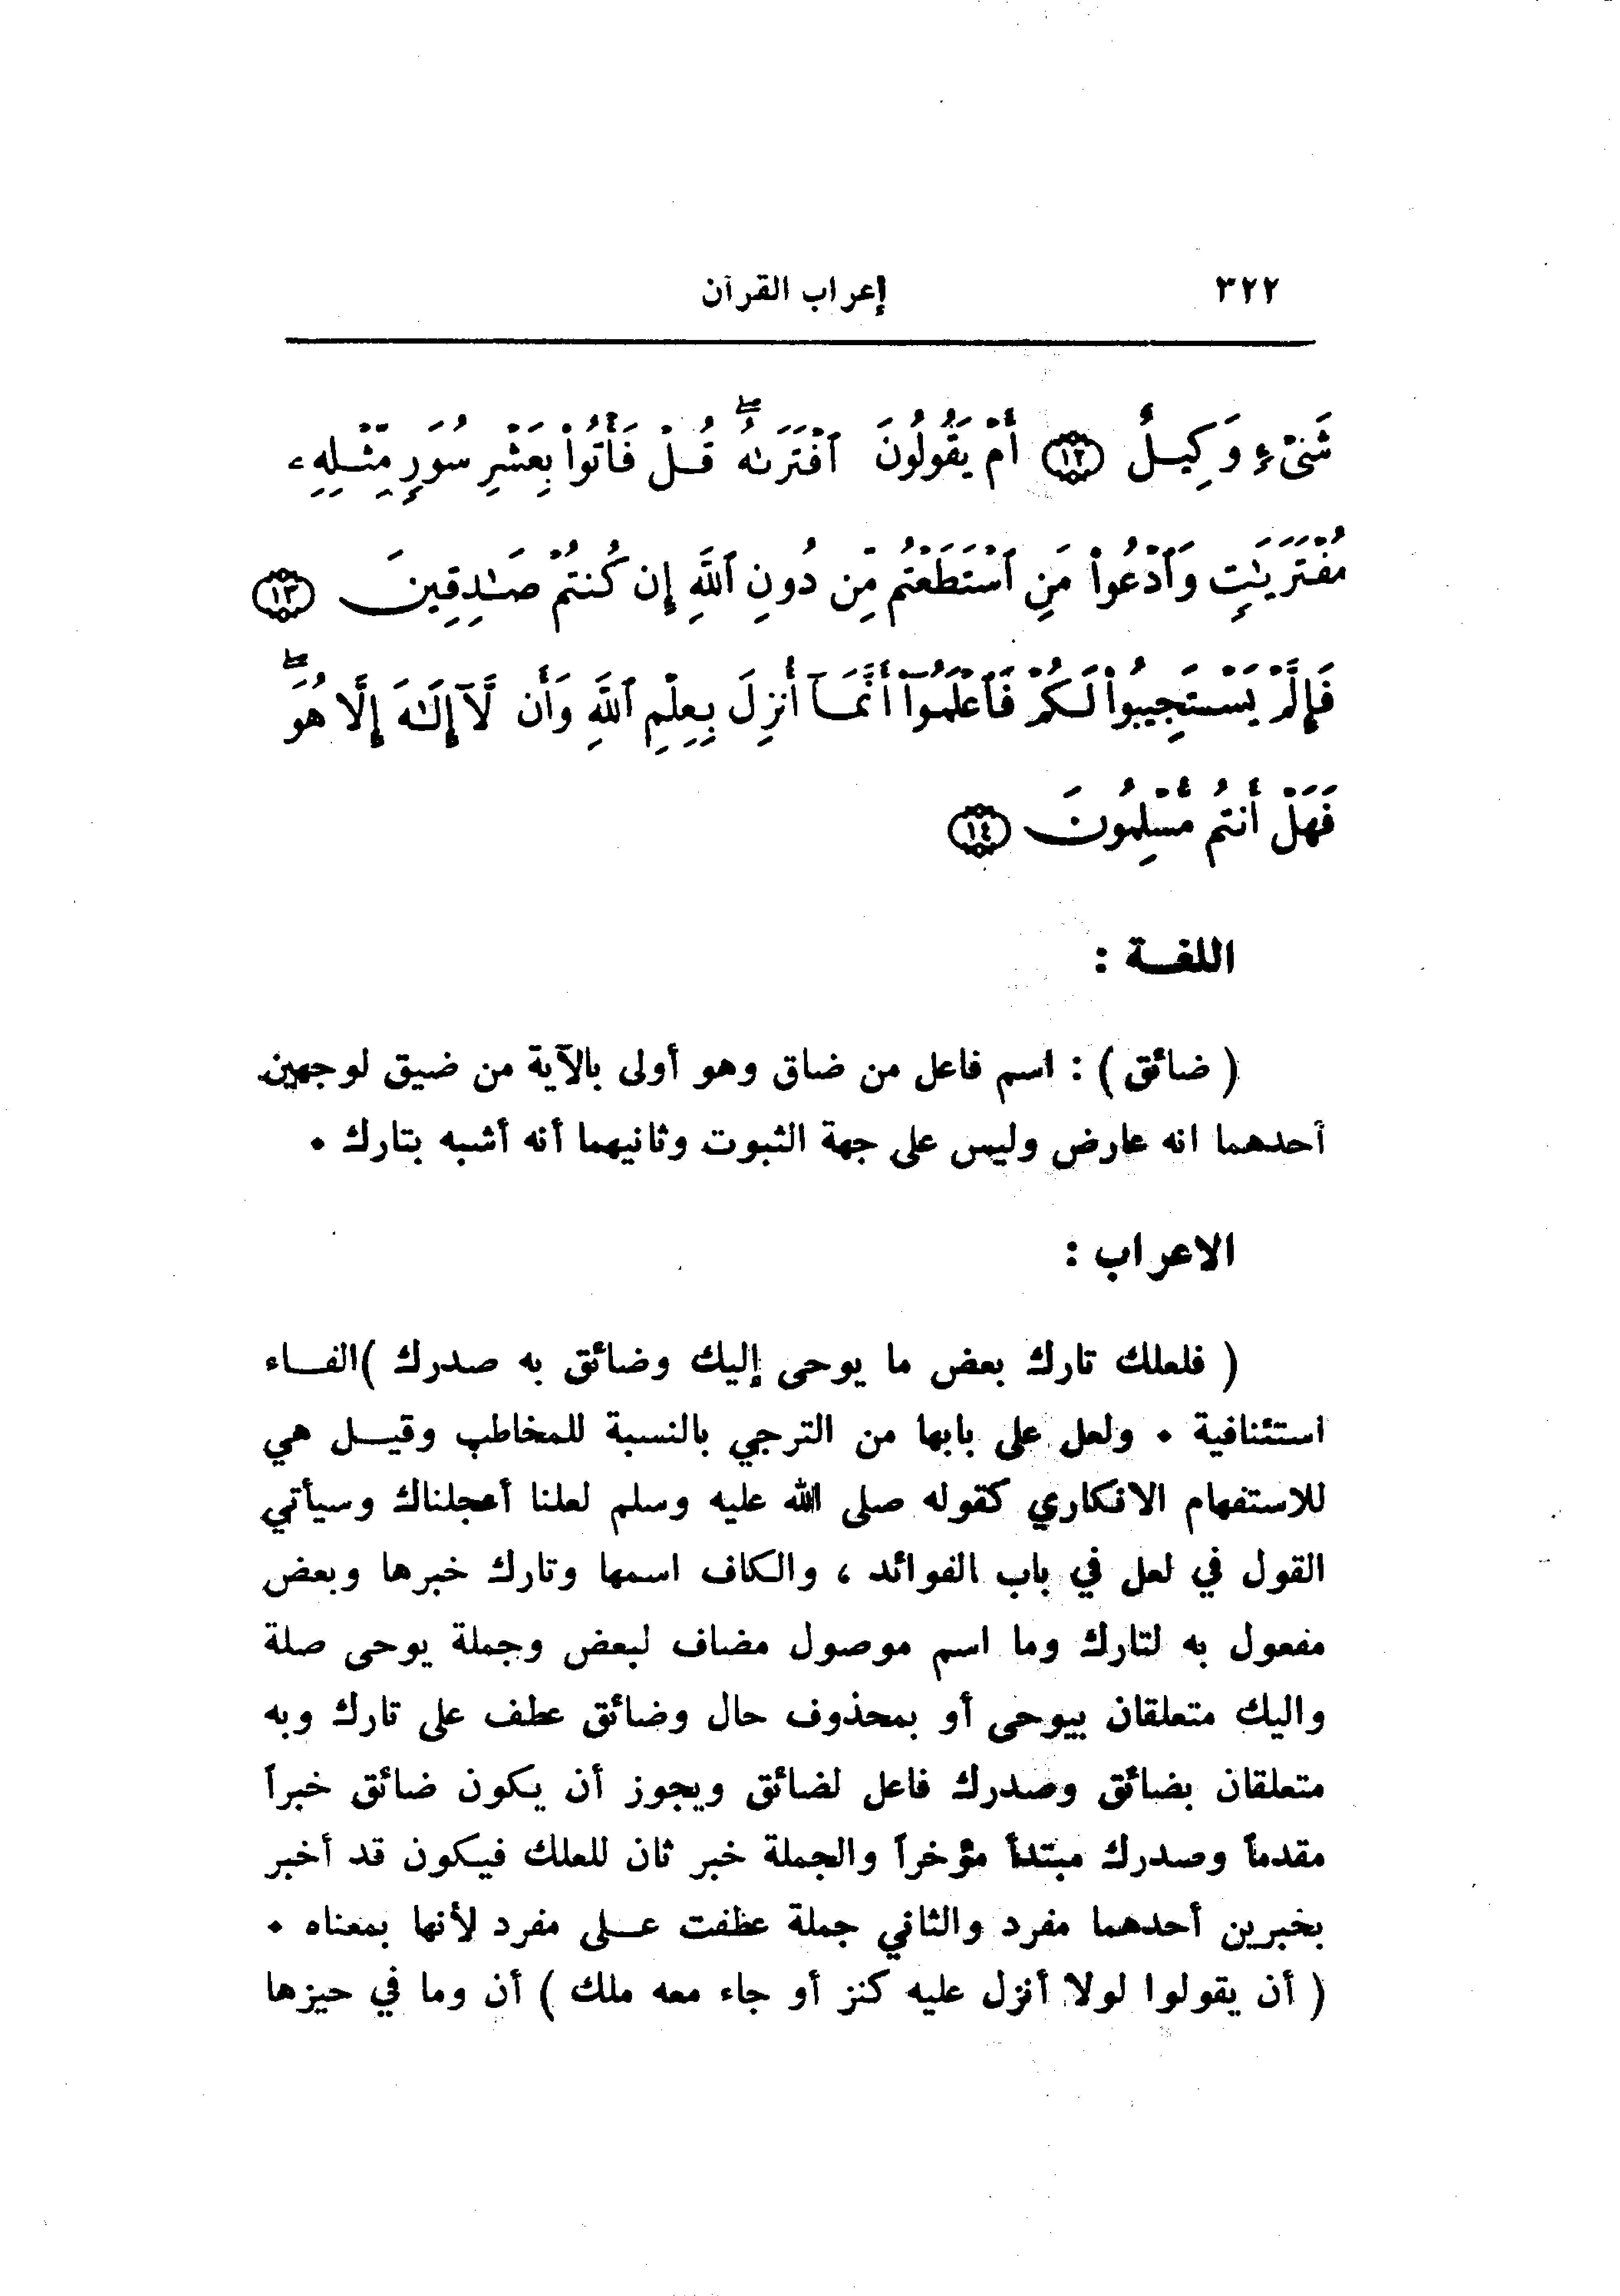 ٣٢٢ إعراب القرآن
شَىْءٍ وَكِيلٌ ١٢ أَمْ يَقُولُونَ ٱفْتَرَىٰهُ ۖ قُلْ فَأْتُوا۟ بِعَشْرِ سُوَرٍ مِّثْلِهِۦ
مُفْتَرَيَـٰتٍ وَٱدْعُوا۟ مَنِ ٱسْتَطَعْتُم مِّن دُونِ ٱللَّهِ إِن كُنتُمْ صَـٰدِقِينَ ١٣
فَإِلَّمْ يَسْتَجِيبُوا۟ لَكُمْ فَٱعْلَمُوٓا۟ أَنَّمَآ أُنزِلَ بِعِلْمِ ٱللَّهِ وَأَن لَّآ إِلَـٰهَ إِلَّا هُوَ ۖ
فَهَلْ أَنتُم مُّسْلِمُونَ ١٤
اللغة :
( ضائق ) : اسم فاعل من ضاق وهو أولى بالآية من ضيق لوجهين
أحدهما انه عارض وليس على جهة الثبوت وثانيهما أنه أشبه بتارك .
الاعراب :
( فلعلك تارك بعض ما يوحى إليك وضائق به صدرك )الفاء
استئنافية . ولعل على بابها من الترجي بالنسبة للمخاطب وقيل هي
للاستفهام الانكاري كقوله صلى الله عليه وسلم لعلنا أعجلناك وسيأتي
القول في لعل في باب الفوائد ، والكاف اسمها وتارك خبرها وبعض
مفعول به لتارك وما اسم موصول مضاف لبعض وجملة يوحى صلة
واليك متعلقان بيوحى أو بمحذوف حال وضائق عطف على تارك وبه
متعلقان بضائق وصدرك فاعل لضائق ويجوز أن يكون ضائق خبراً
مقدماً وصدرك مبتدأ مؤخراً والجملة خبر ثان للعلك فيكون قد أخبر
بخبرين أحدهما مفرد والثاني جملة عظفت على مفرد لأنها بمعناه .
( أن يقولوا لولا أنزل عليه كنز أو جاء معه ملك ) أن وما في حيزها